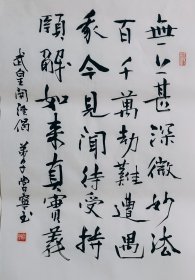 無上甚深微妙法
百千萬劫難遭遇
我今見聞得受持
願解如来真實義
武皇開經偈 弟子